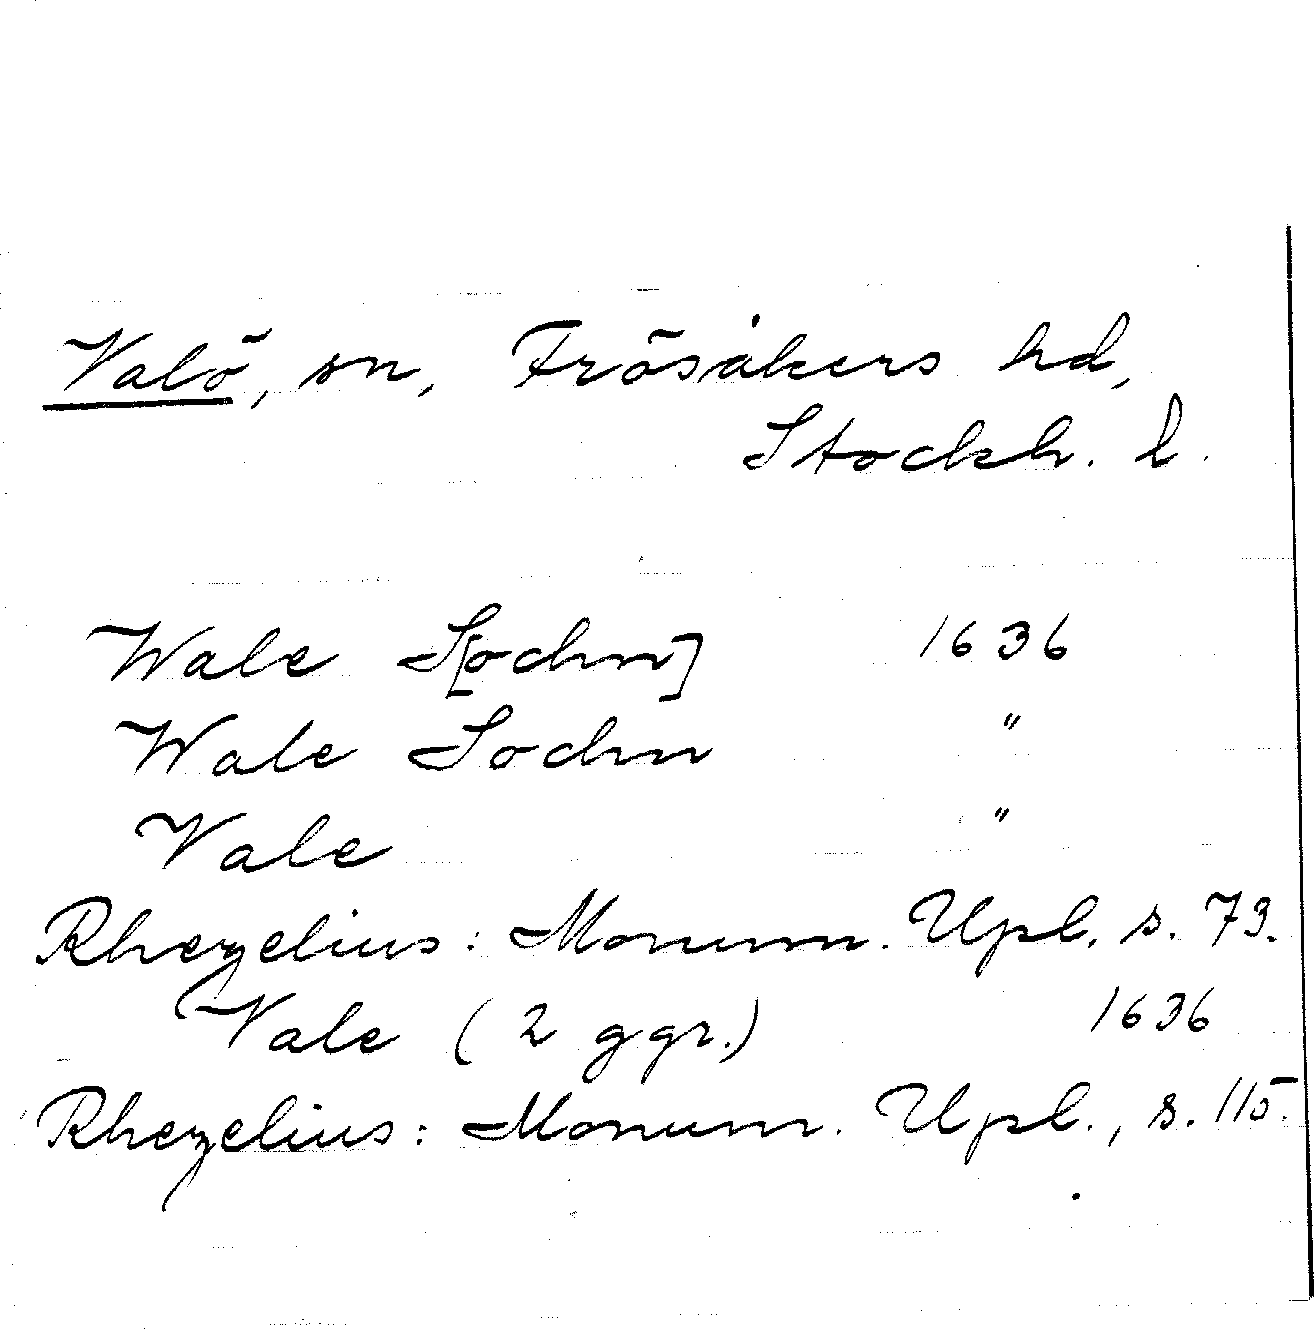 Valö, sn, Frösåkers hd,
Stockh. l.
Wale S[ochn] 1636
Wale Sochn "
Vale "
Rhezelius: Monum. Upl. s. 73.
Vale (2 ggr.) 1636
Rhezelius: Monum. Upl., s. 115.